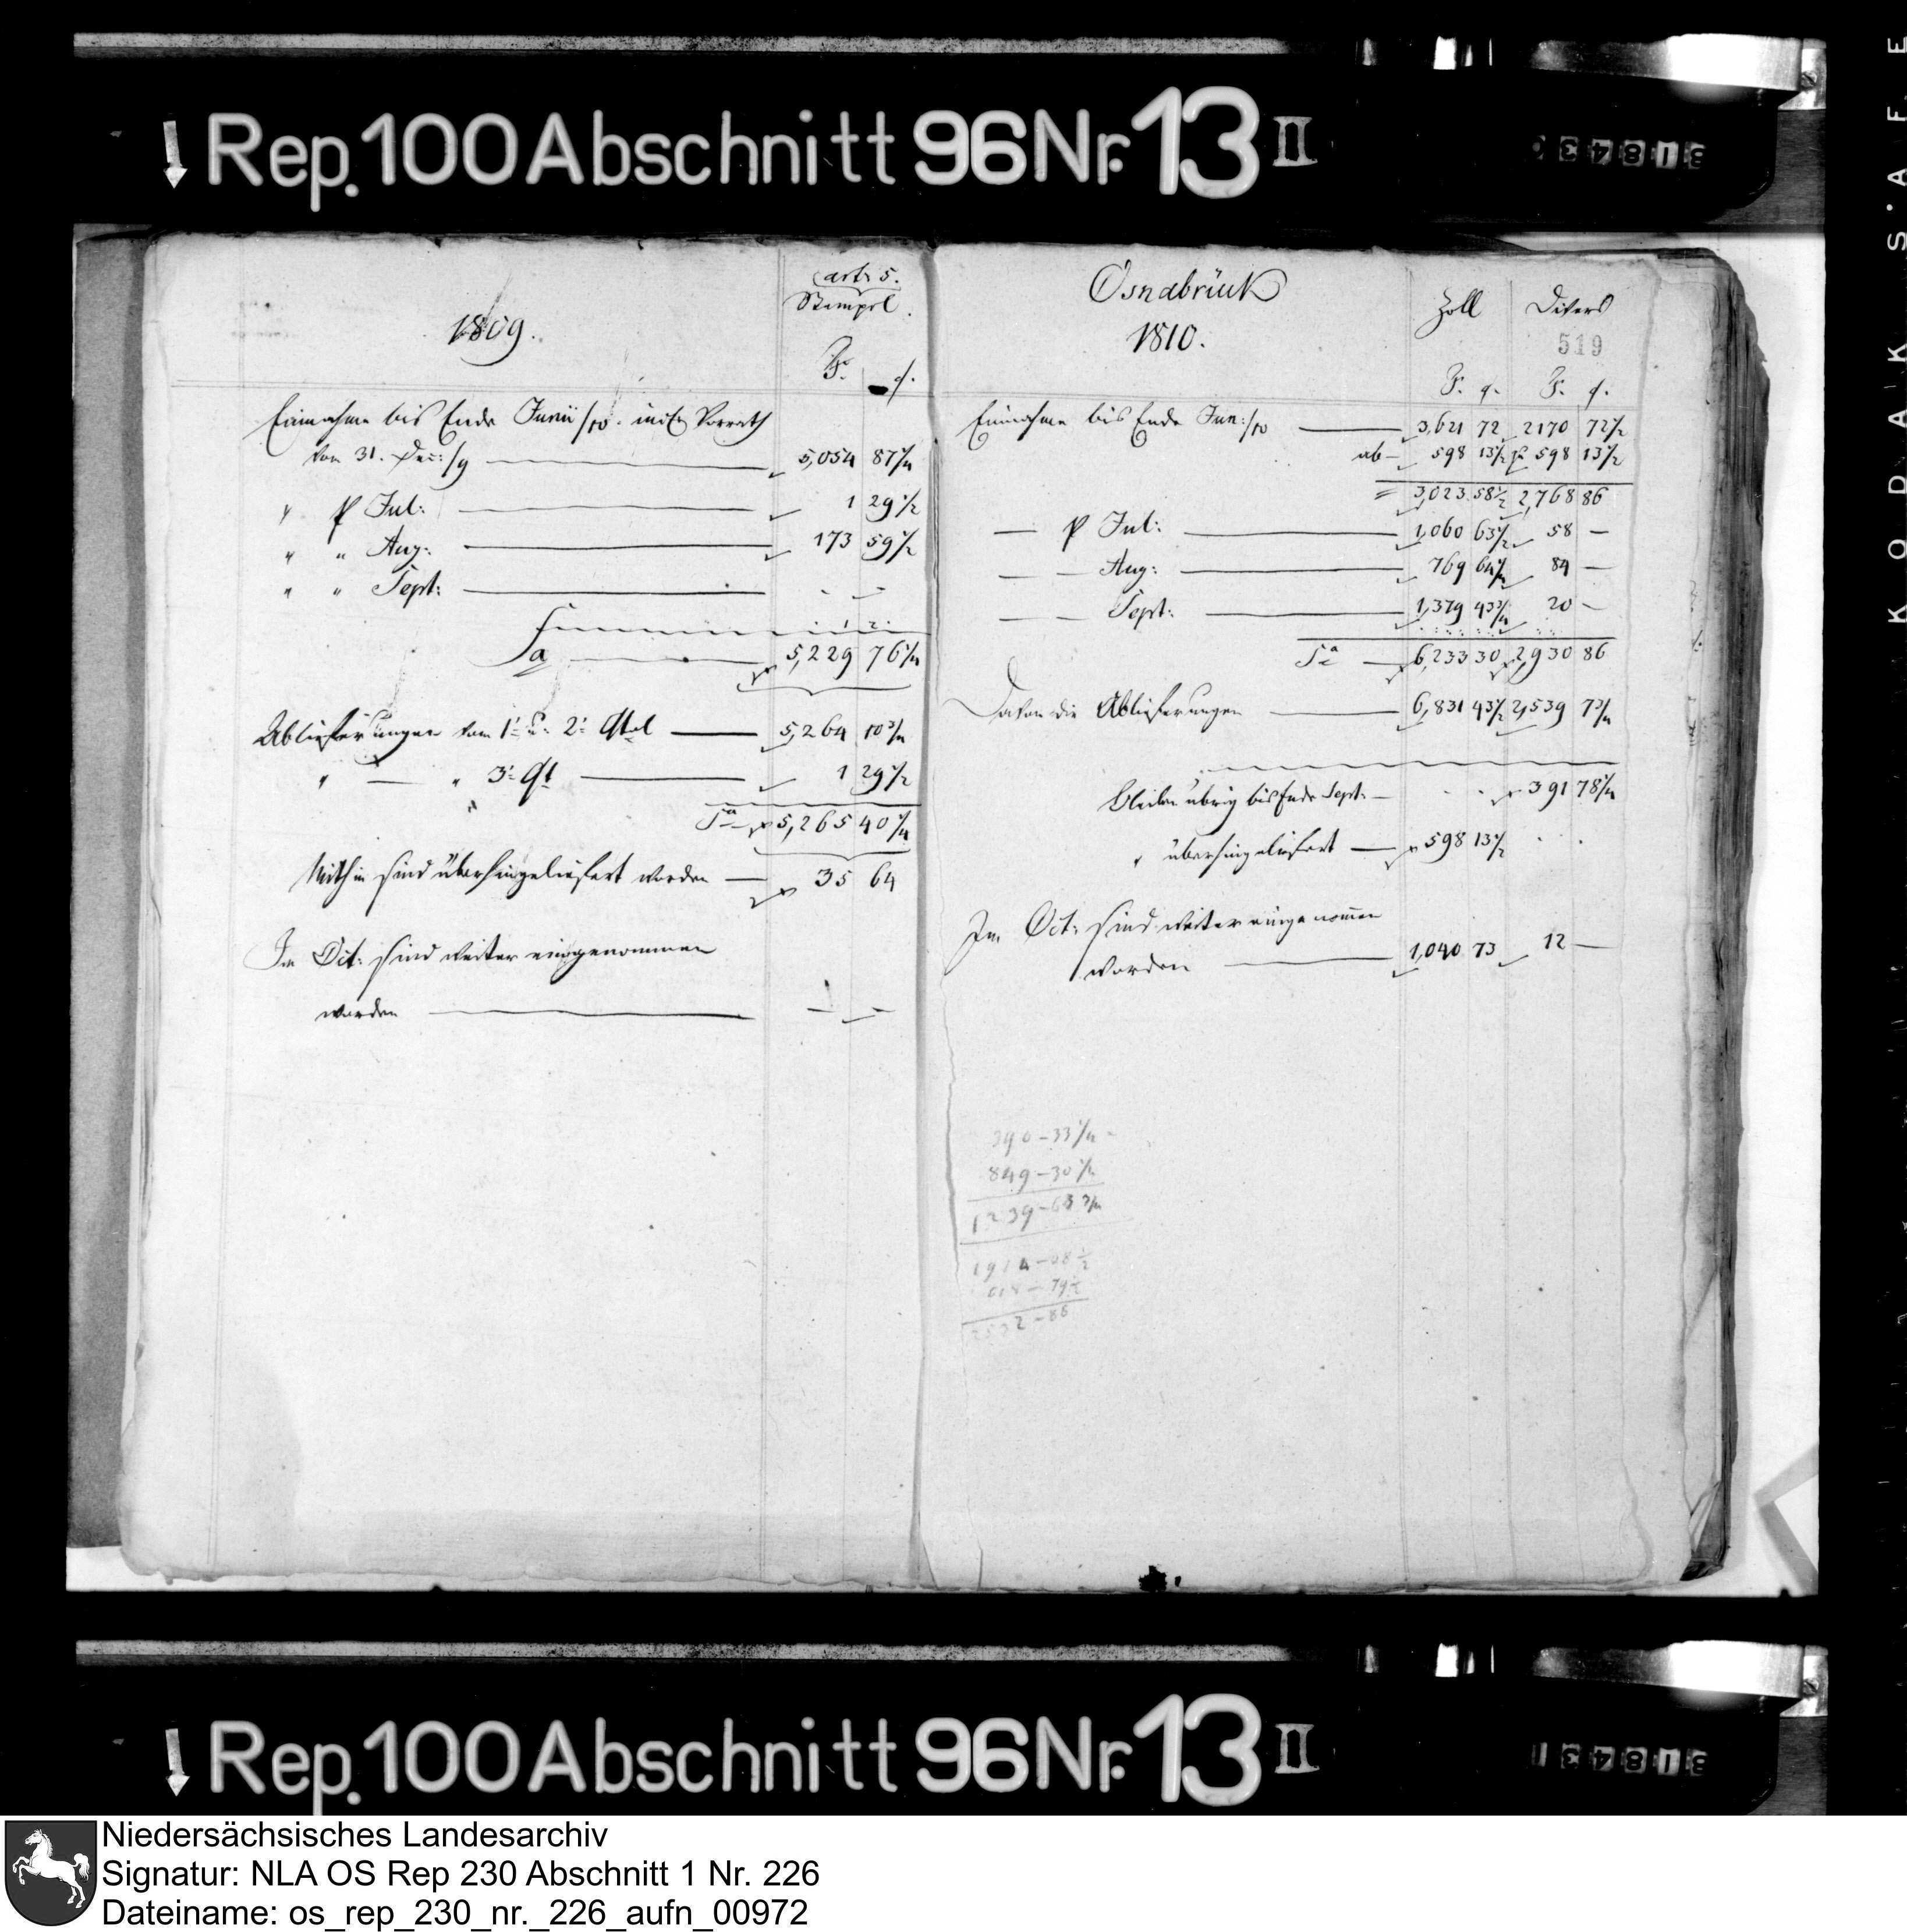 Rep. 100 Abschnitt 96 Nr. 13 II
318430
KODAK S'AFE
1809.
art: 5.
Stempel.
F. c.
Einnahme bis Ende Junii/10. incl. Vorrath
von 31. Dec:/9 — 5,054 87 1/4
" p Jul: — 1 29 1/2
" " Aug: — 173 59 1/2
" " Sept: — - -
Sa — 5,229 76 1/4
Ablieferungen vom 1. u. 2. Qtal — 5,264 10 3/4
" — " 3. Qt — 1 29 1/2
Sa — 5,265 40 1/4
Mithin sind überhingeliefert worden — 35 64
Im Oct: sind weiter eingenommen
worden — - -
Osnabrück
1810.
Zoll Divers
519
F. c. F. c.
Einnahme bis Ende Jun:/10 — 3,621 72 2170 72 1/2
ab — 598 13 1/2 598 13 1/2
= 3,023 58 1/2 2,768 86
— p Jul: — 1,060 63 1/2 58 —
— — Aug: — 769 64 1/4 84 —
— — Sept: — 1,379 43 3/4 20 —
Sa — 6,233 30 2,930 86
Davon die Ablieferungen — 6,831 43 1/2 2,539 7 3/4
Bleiben übrig bis Ende Sept: — 391 78 1/4
" überhingeliefert — 598 13 1/2
Im Oct: sind weiter eingenommen
worden — 1,040 73 12 —
390 - 33 1/4
849 - 30 1/2
1239 - 63 3/4
1914 - 08 1/2
79 1/2
2532 - 86
Rep. 100 Abschnitt 96 Nr. 13 II
318431
Niedersächsisches Landesarchiv
Signatur: NLA OS Rep 230 Abschnitt 1 Nr. 226
Dateiname: os_rep_230_nr._226_aufn_00972